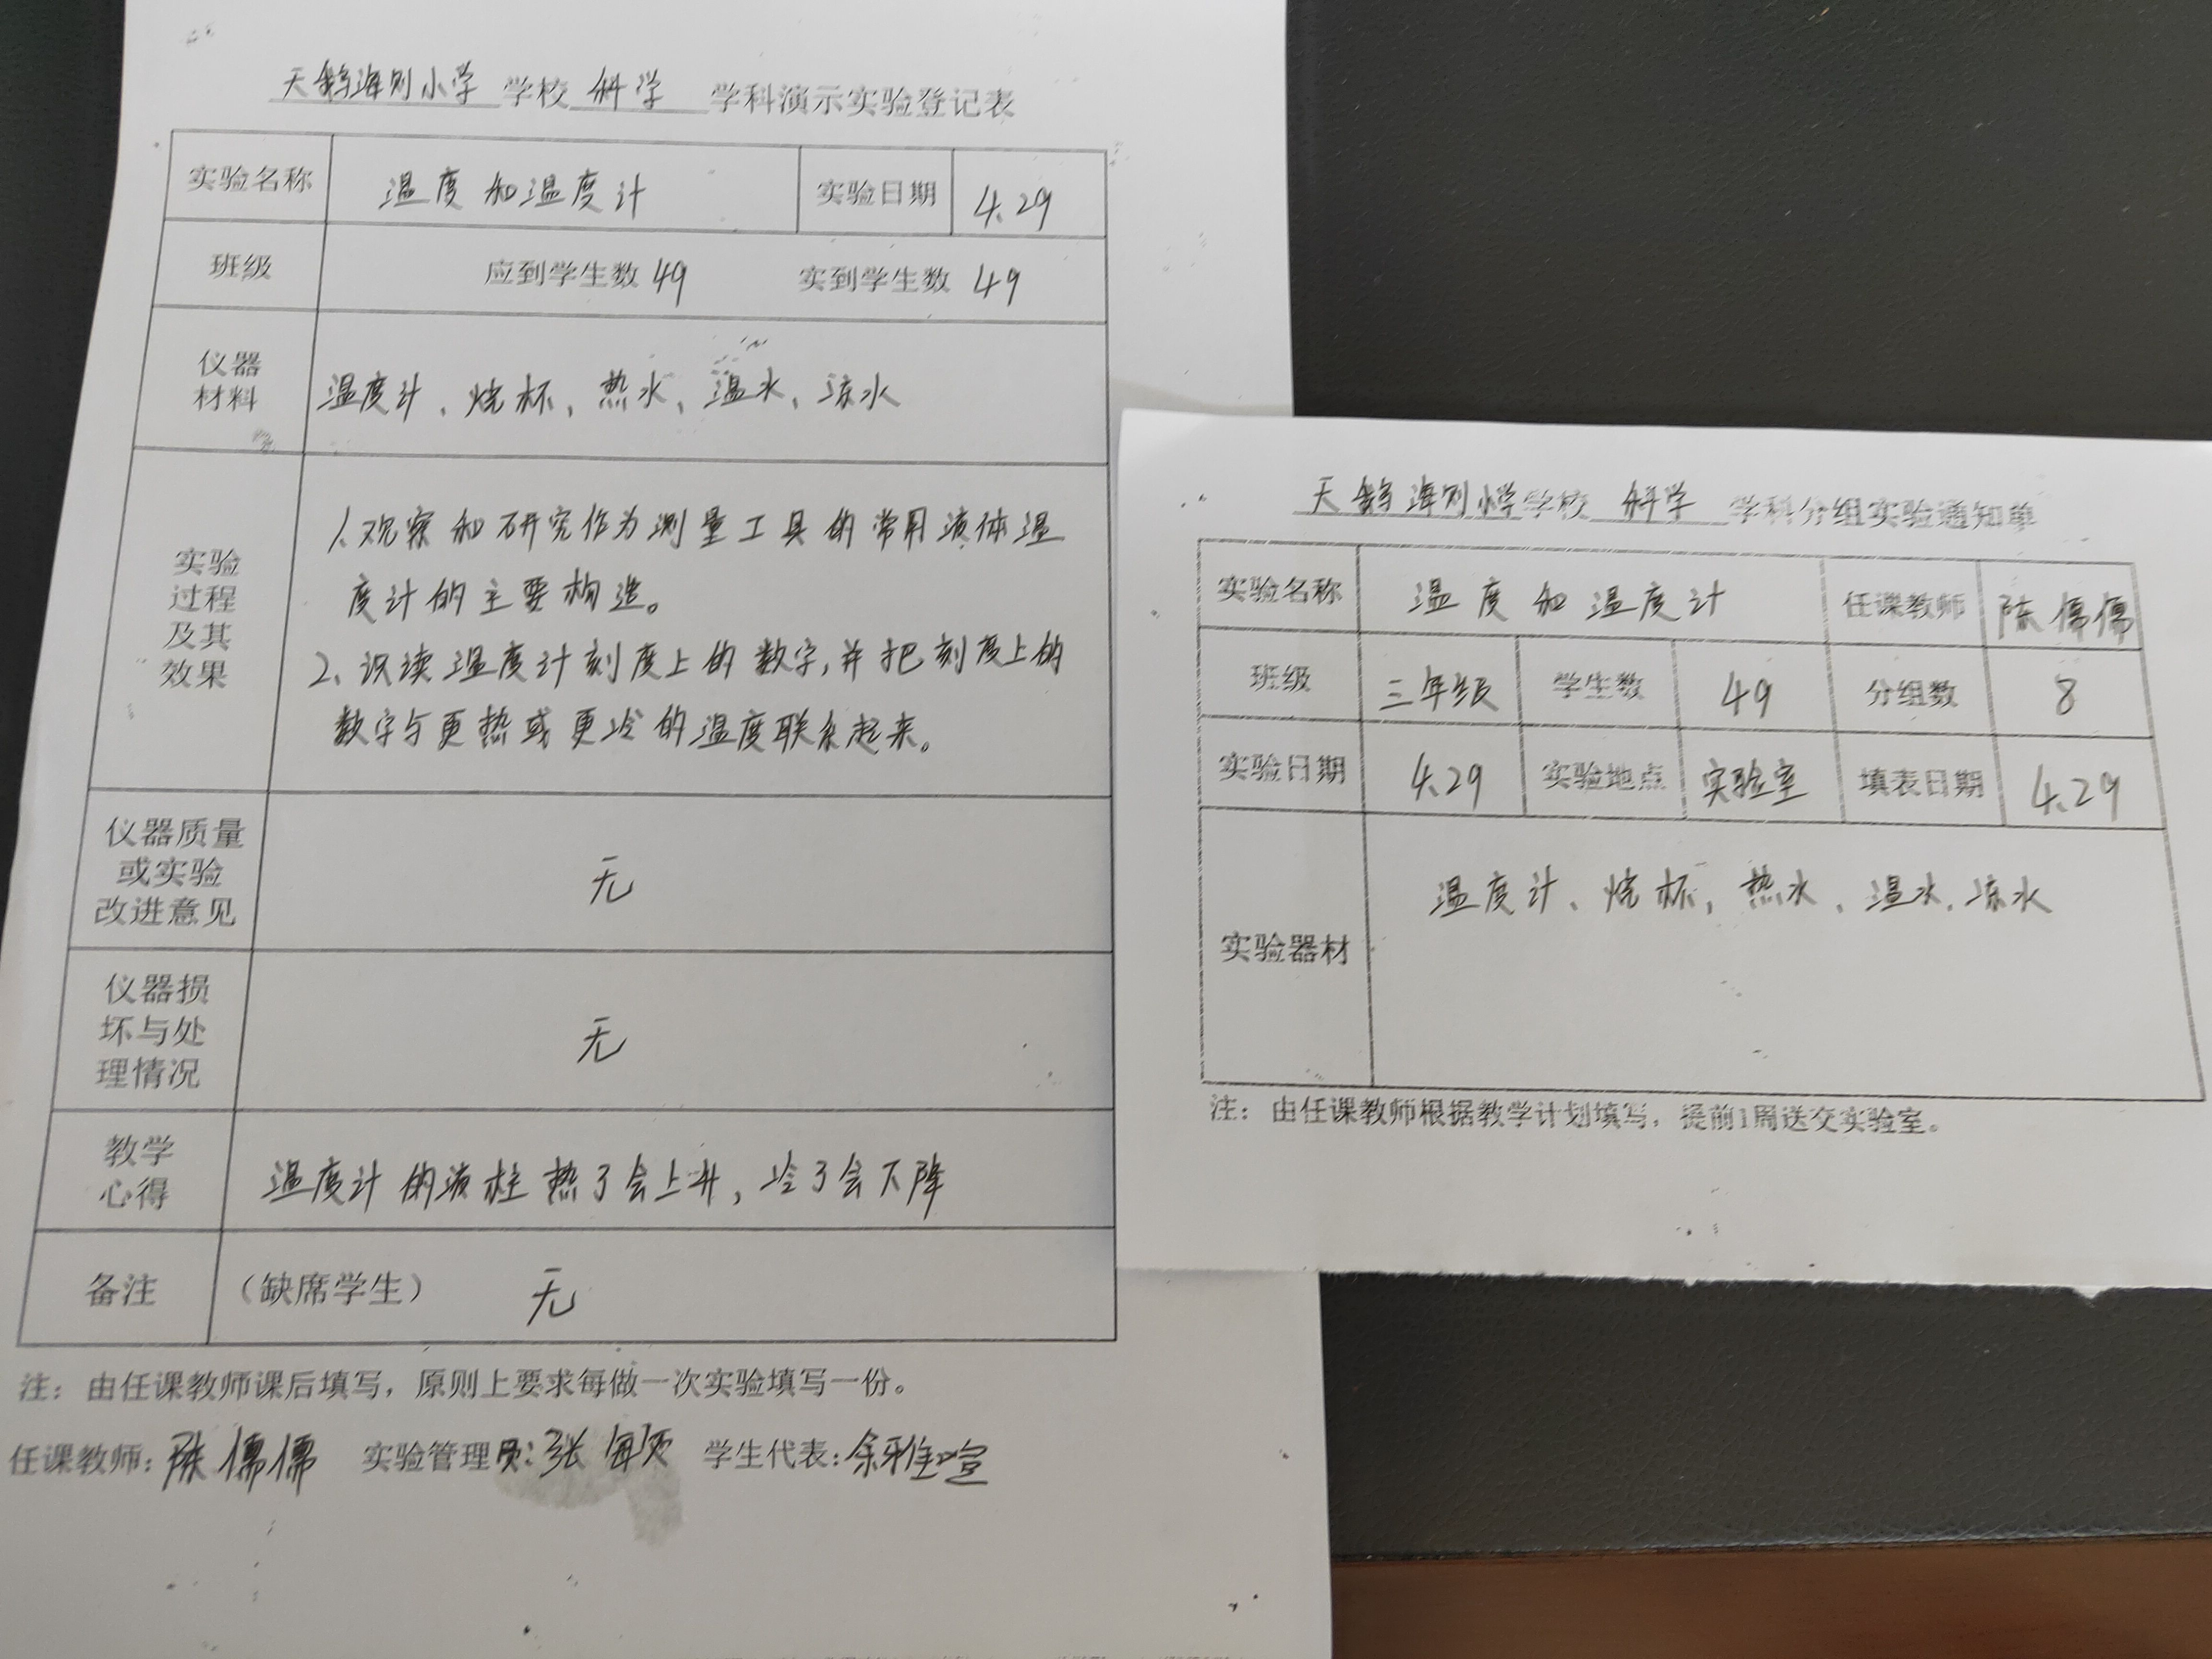 天鹅海别小学 学校 科学 学科演示实验登记表
实验名称 温度和温度计 实验日期 4.29
班级 应到学生数 49 实到学生数 49
仪器
材料
温度计、烧杯、热水、温水、凉水
实验
过程
及其
效果
1.观察和研究作为测量工具的常用液体温
度计的主要构造。
2、识读温度计刻度上的数字,并把刻度上的
数字与更热或更冷的温度联系起来。
仪器质量
或实验
改进意见
无
仪器损
坏与处
理情况
无
教学
心得
温度计的液柱热了会上升,冷了会下降
备注 （缺席学生） 无
注：由任课教师课后填写，原则上要求每做一次实验填写一份。
任课教师:陈儒儒 实验管理员:张 学生代表:余雅喧
天鹅海别小学学校 科学 学科分组实验通知单
实验名称 温度和温度计 任课教师 陈儒儒
班级 三年级 学生数 49 分组数 8
实验日期 4.29 实验地点 实验室 填表日期 4.29
实验器材 温度计、烧杯,热水、温水、凉水
注：由任课教师根据教学计划填写，提前1周送交实验室。